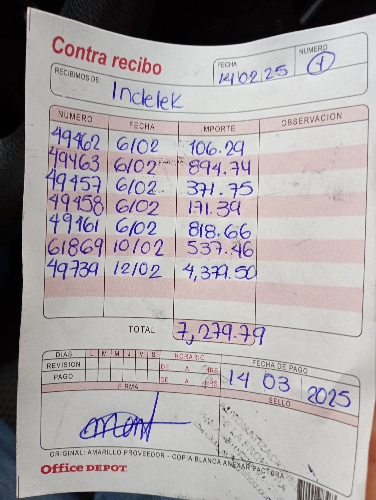 Contra recibo
FECHA
14 02 25
NUMERO
1
RECIBIMOS DE:
Indelek
NUMERO FECHA IMPORTE OBSERVACION
49462 6/02 106.29
49463 6/02 894.74
49457 6/02 371.75
49458 6/02 171.39
49461 6/02 818.66
61869 10/02 537.46
49739 12/02 4,379.50
TOTAL 7,279.79
DIAS L M M J V S HORARIO
REVISION DE A HRS
PAGO DE A HRS
FECHA DE PAGO
14 03 2025
FIRMA
SELLO
ORIGINAL: AMARILLO PROVEEDOR - COPIA BLANCA ANEXAR FACTURA
Office DEPOT